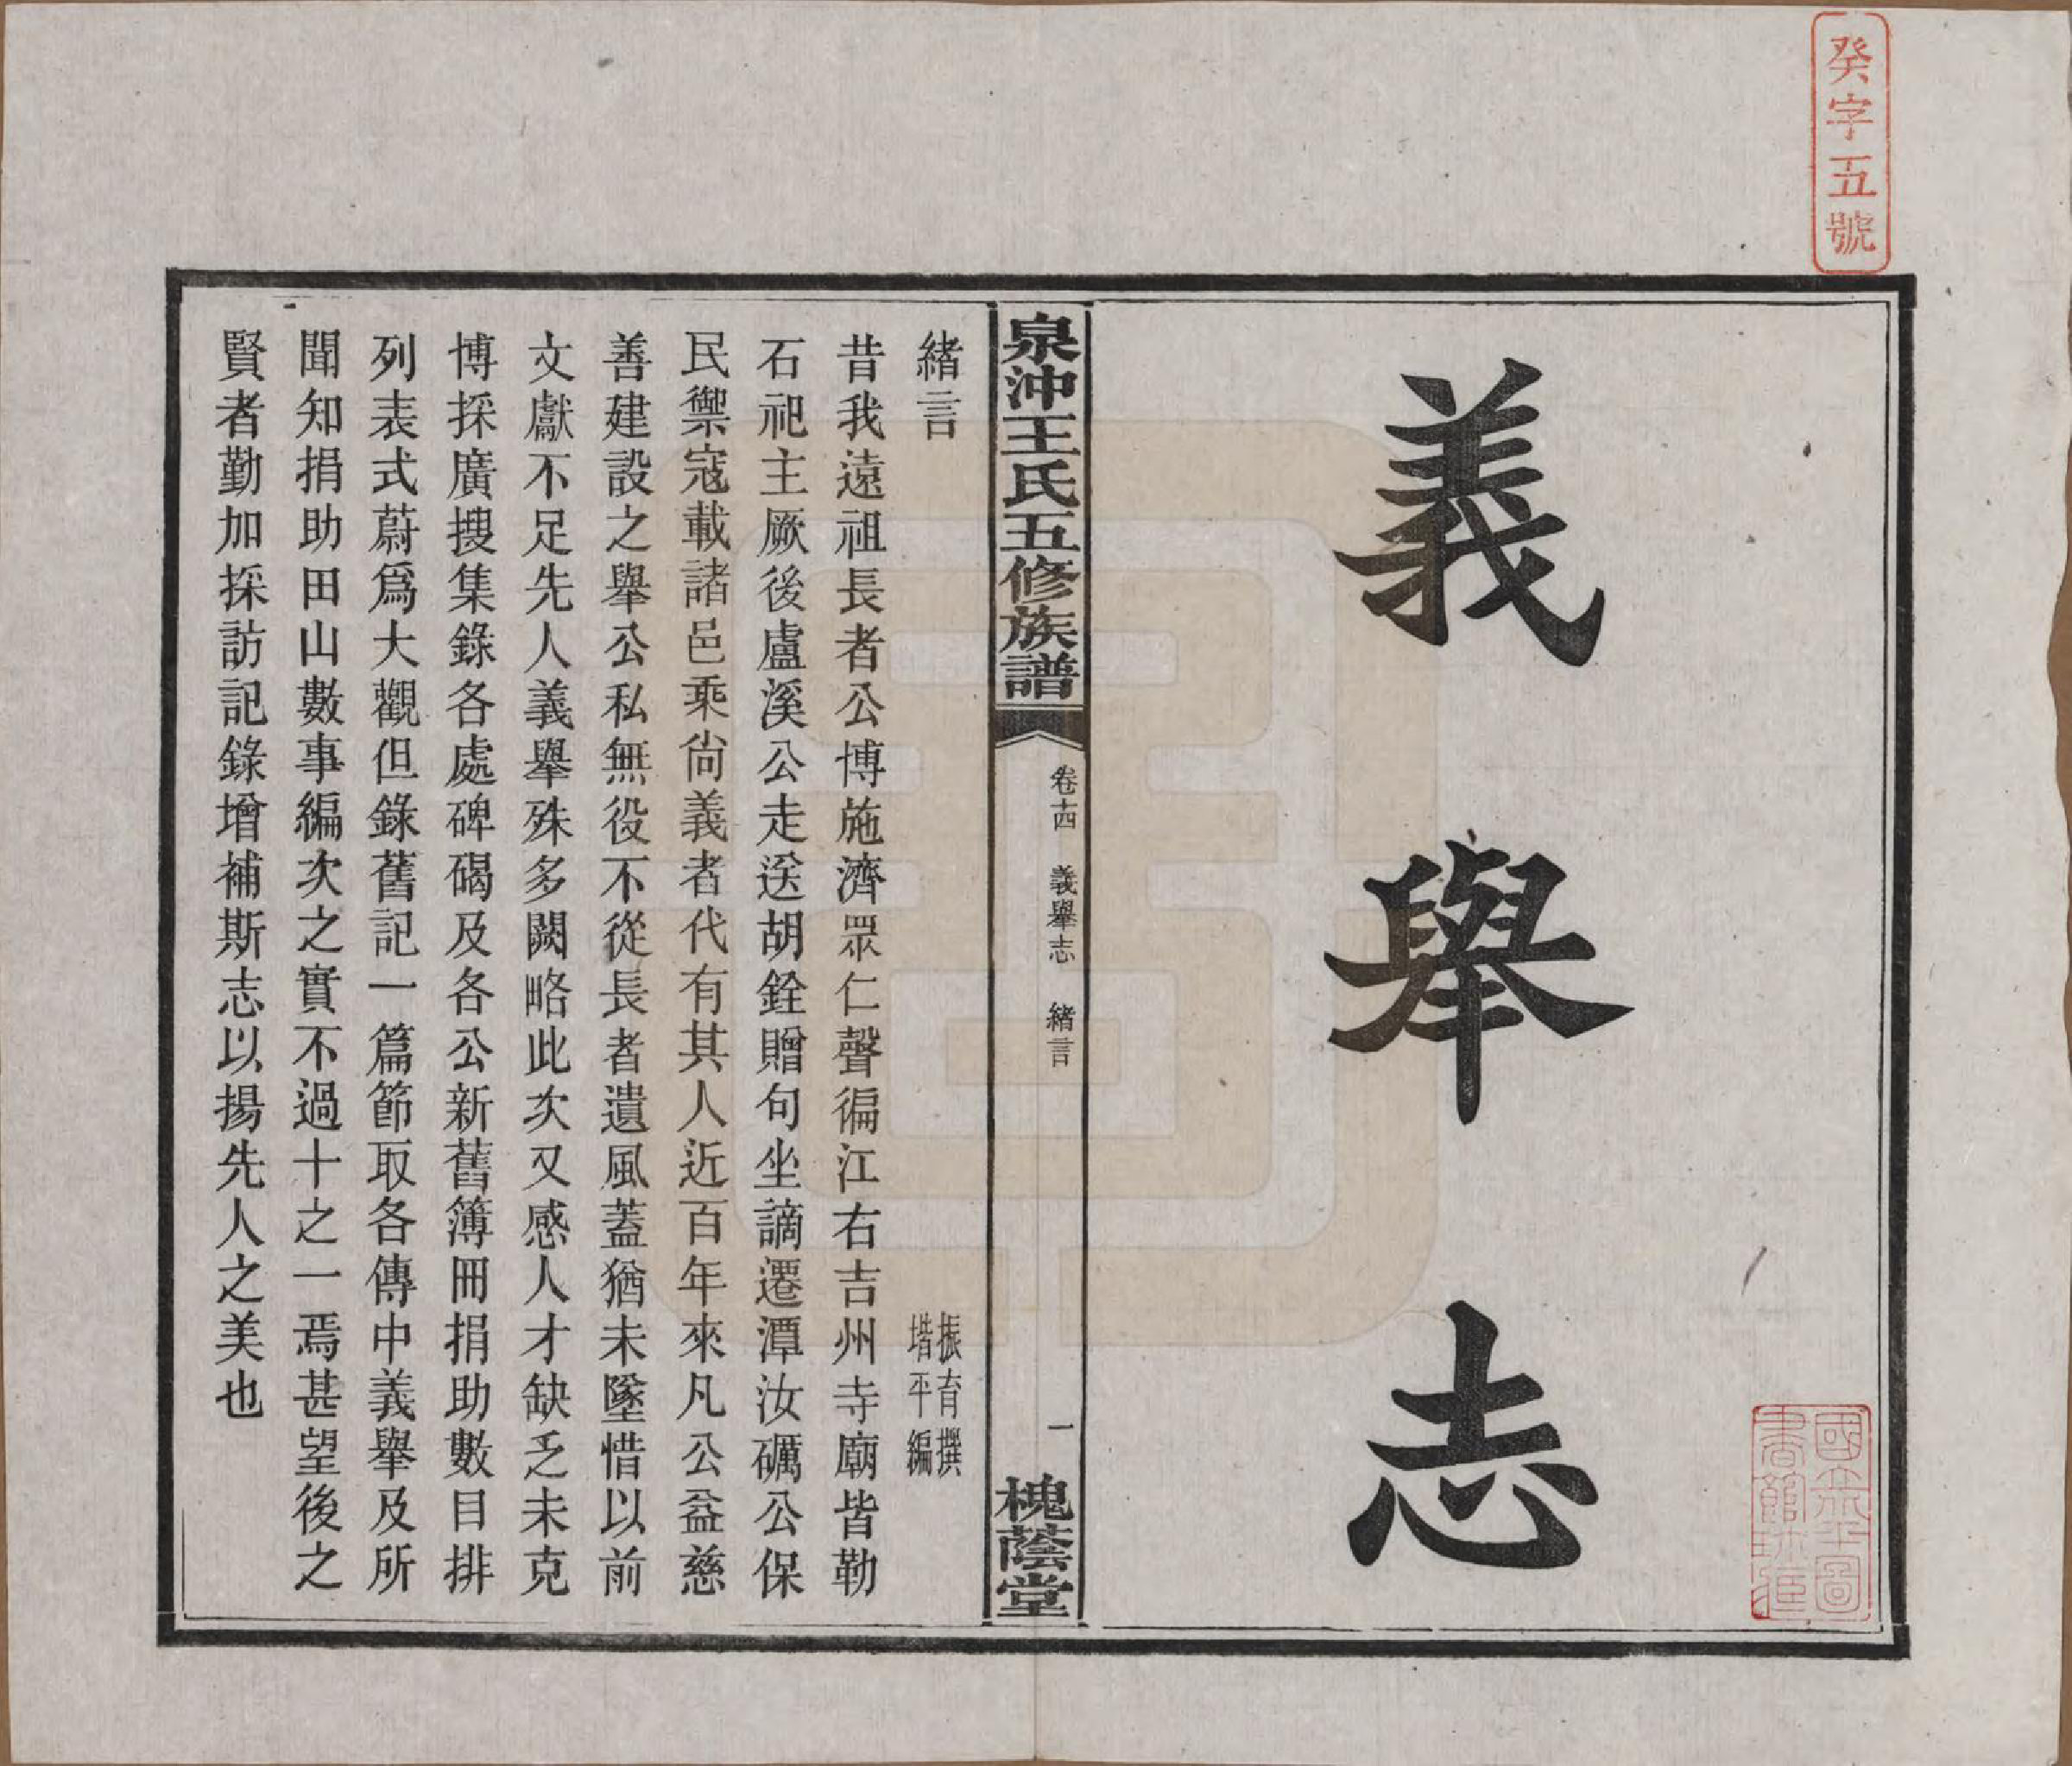 癸字五號
義舉志
國立北平圖
書館珍藏
泉沖王氏五修族譜
卷十四 義舉志 緒言
一
槐蔭堂
緒言
振育撰
堦平編
昔我遠祖長者公博施濟眾仁聲徧江右吉州寺廟皆勒
石祀主厥後盧溪公走送胡銓贈句坐謫遷潭汝礪公保
民禦寇載諸邑乘尙義者代有其人近百年來凡公益慈
善建設之舉公私無役不從長者遺風蓋猶未墜惜以前
文獻不足先人義舉殊多闕略此次又感人才缺乏未克
博採廣搜集錄各處碑碣及各公新舊簿冊捐助數目排
列表式蔚爲大觀但錄舊記一篇節取各傳中義舉及所
聞知捐助田山數事編次之實不過十之一焉甚望後之
賢者勤加採訪記錄增補斯志以揚先人之美也